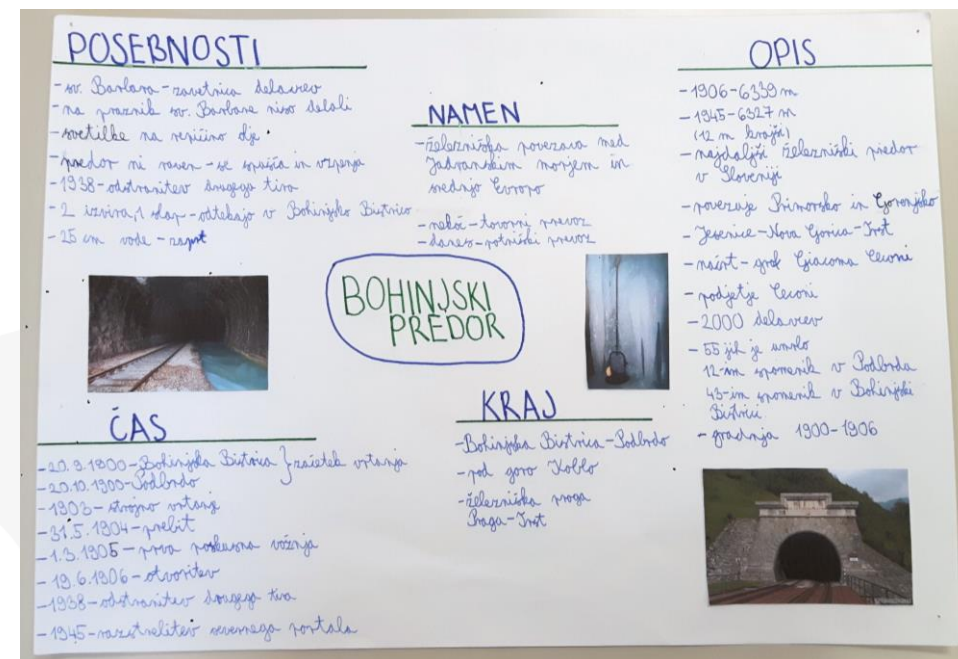 POSEBNOSTI
- sv. Barbara - zavetnica delavcev
- na praznik sv. Barbare niso delali
- svetilke na repično olje
- predor ni raven - se spušča in vzpenja
- 1938 - odstranitev drugega tira
- 2 izvira, 1 slap - odtekajo v Bohinjsko Bistrico
- 25 cm vode - zaprt
NAMEN
- železniška povezava med
Jadranskim morjem in
srednjo Evropo
- nekoč - tovorni prevoz
- danes - potniški prevoz
OPIS
- 1906 - 6339 m
- 1945 - 6327 m
(12 m krajši)
- najdaljši železniški predor
v Sloveniji
- povezuje Primorsko in Gorenjsko
- Jesenice - Nova Gorica - Trst
- načrt - grof Giacomo Ceconi
- podjetje Ceconi
- 2000 delavcev
- 55 jih je umrlo
12 - im spomenik v Podbrdu
43 - im spomenik v Bohinjski
Bistrici
- gradnja 1900 - 1906
BOHINJSKI
PREDOR
ČAS
- 20.9.1900 - Bohinjska Bistrica } začetek vrtanja
- 20.10.1900 - Podbrdo
- 1903 - strojno vrtanje
- 31.5.1904 - prebit
- 1.3.1905 - prva poskusna vožnja
- 19.6.1906 - otvoritev
- 1938 - odstranitev drugega tira
- 1945 - razstrelitev severnega portala
KRAJ
- Bohinjska Bistrica - Podbrdo
- pod goro Kobla
- železniška proga
Praga - Trst